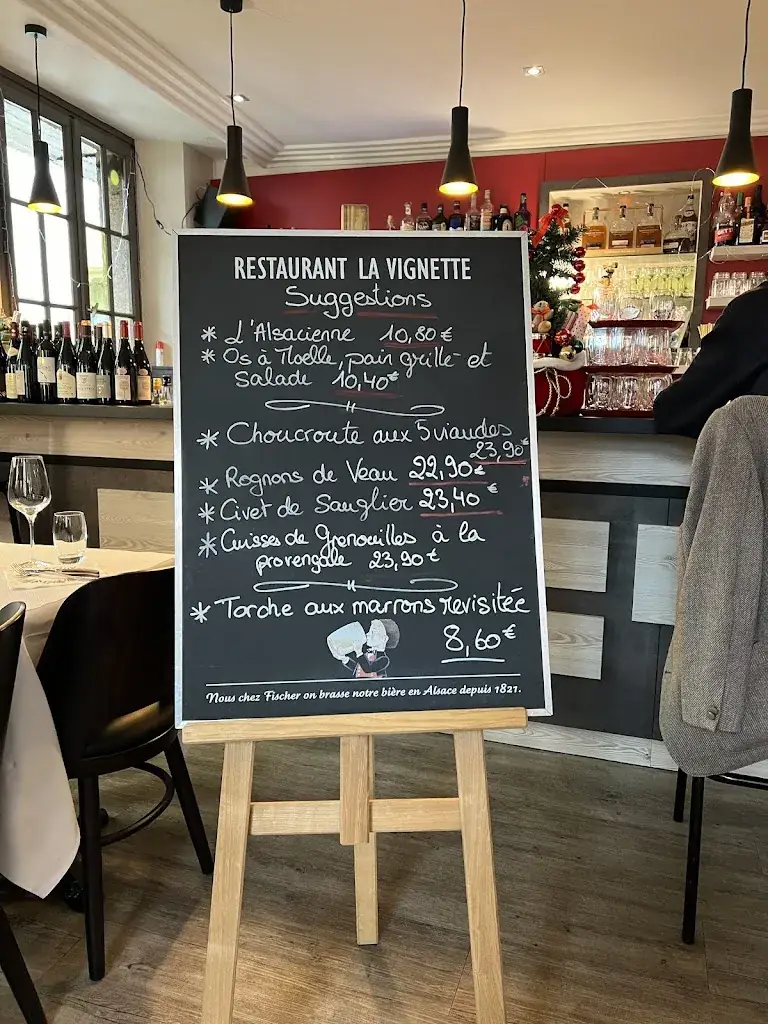 RESTAURANT LA VIGNETTE
Suggestions
* L'Alsacienne 10,80 €
* Os à Moelle, pain grillé et
salade 10,40€
* Choucroute aux 5 viandes
23,90€
* Rognons de Veau 22,90€
* Civet de Sanglier 23,40€
* Cuisses de Grenouilles à la
provençale 23,90 €
* Torche aux marrons revisitée
8,60€
Nous chez Fischer on brasse notre bière en Alsace depuis 1821.